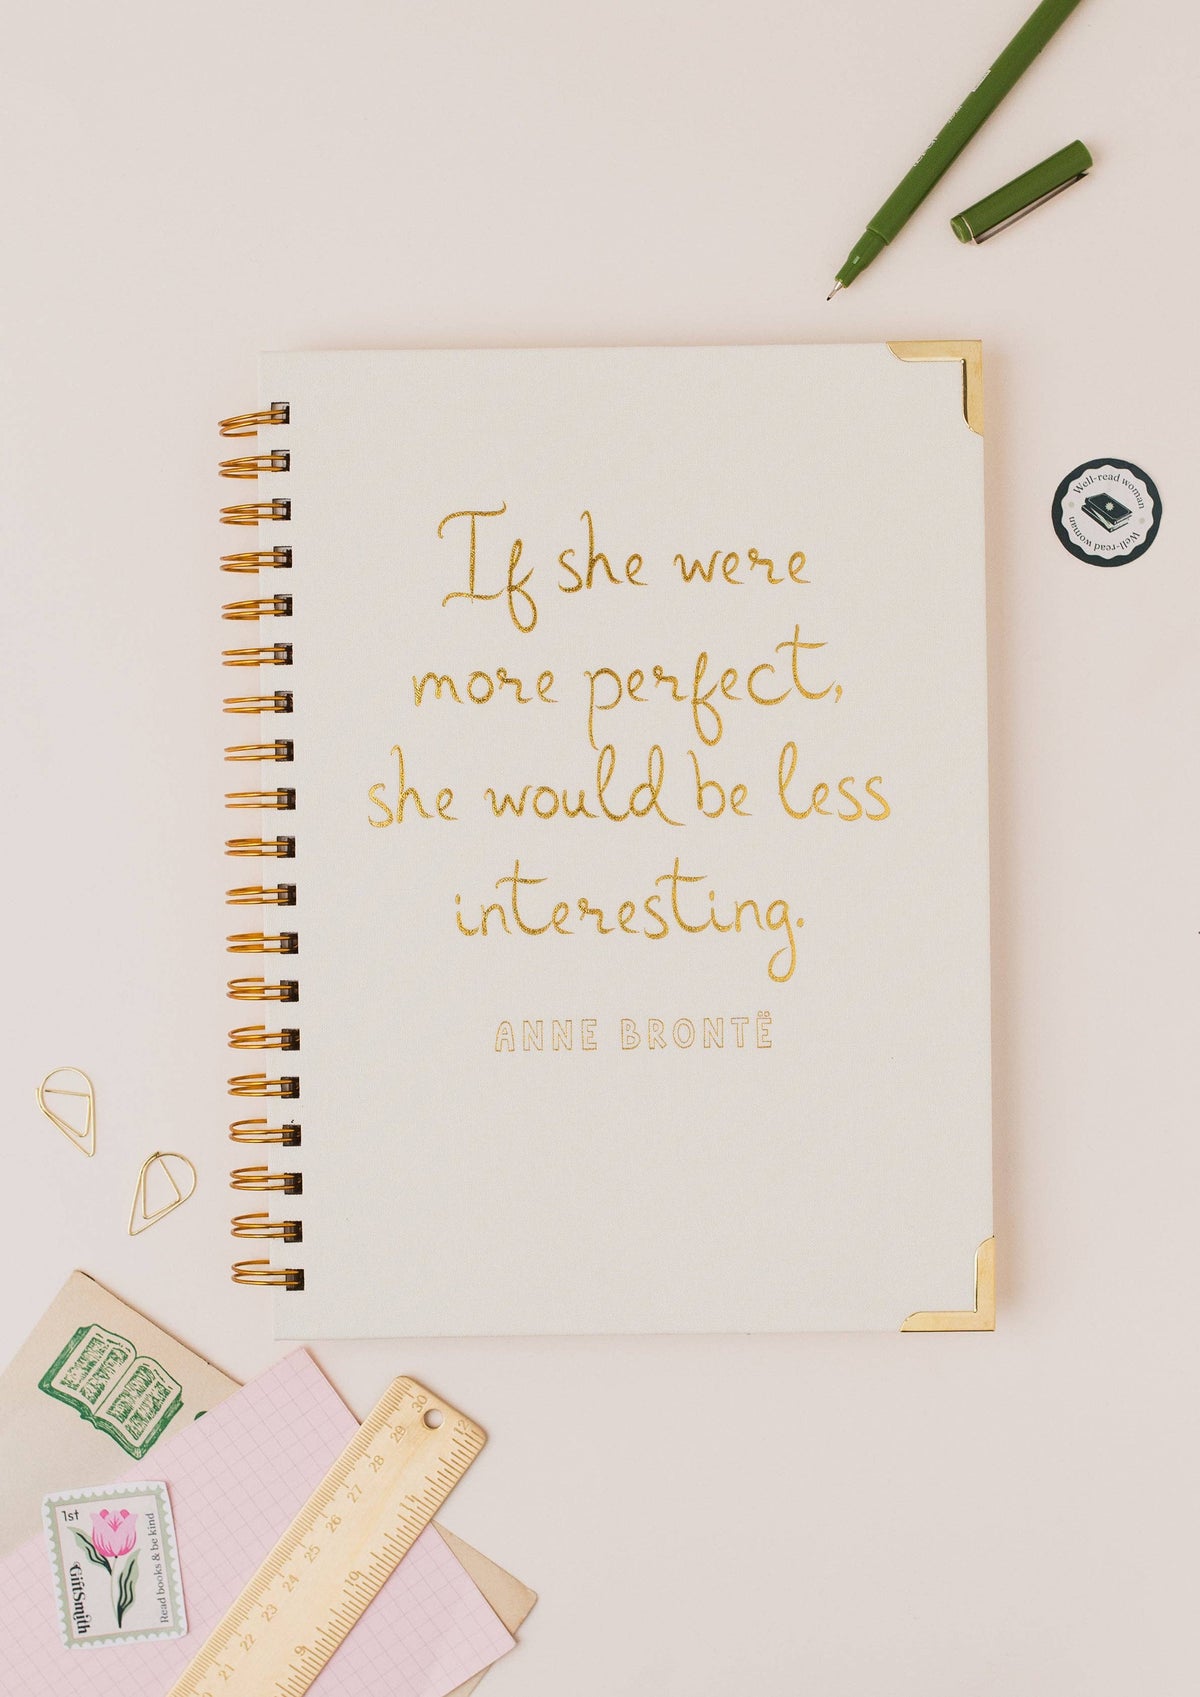 If she were
more perfect,
she would be less
interesting.
ANNE BRONTË
Well-read woman
Well-read woman
1st
GiftSmith
Read books & be kind
30
29
28
27
26
25
24
23
22
21
12
10
9